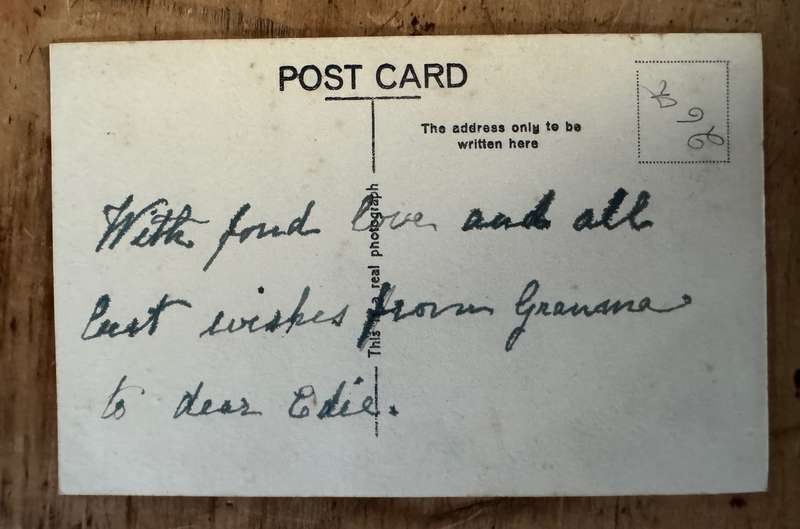 POST CARD
The address only to be
written here
This is a real photograph
With fond love and all
best wishes from Granma
to dear Edie.